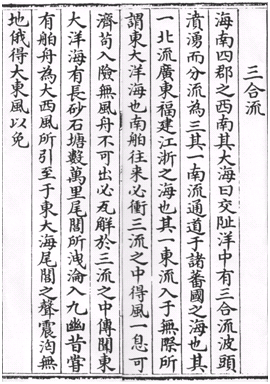 三合流
海南四郡之西南其大海曰交阯洋中有三合流波頭
濆湧而分流為三其一南流通道于諸蕃國之海也其
一北流廣東福建江浙之海也其一東流入于無際所
謂東大洋海也南舶往来必衝三流之中得風一息可
濟苟入險無風舟不可出必瓦解於三流之中傳聞東
大洋海有長砂石塘數萬里尾閭所洩淪入九幽昔嘗
有舶舟為大西風所引至于東大海尾閭之聲震洶無
地俄得大東風以免